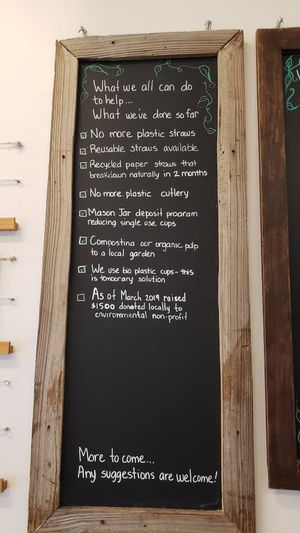 What we all can do
to help...
What we've done so far
No more plastic straws
Reusable straws available
Recycled paper straws that
breakdown naturally in 2 months
No more plastic cutlery
Mason Jar deposit program
reducing single use cups
Composting our organic pulp
to a local garden
We use bio plastic cups - this
is temporary solution
As of March 2019 raised
$1500 donated locally to
environmental non-profit
More to come...
Any suggestions are welcome!